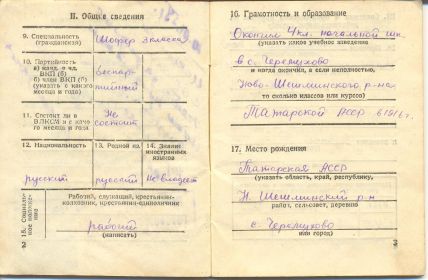 II. Общие сведения
9. Специальность
(гражданская)
Шофер 3 класса
10. Партийность
а) канд. с чл.
ВКП (б)
б) член ВКП (б)
(указать с какого
месяца и года)
Беспар-
тийный
11. Состоит ли в
ВЛКСМ и с каче-
го месяца и года
Не
состоит
12. Национальность
13. Родной яз.
14. Знание
иностранных
языков
русский
русский
Не владеет
15. Социаль-
ное положе-
ние
Рабочий, служащий, крестьянин-
колхозник, крестьянин-единоличник
рабочий
(написать)
16. Грамотность и образование
Окончил 4 кл. начальной шк.
(указать какое учебное заведение
в с. Черемухово
и когда окончил, а если неполностью,
Ново-Шешминского р-на
то сколько классов или курсов)
Татарской АССР в 1916 г.
17. Место рождения
Татарская АССР
(указать область, край, республику,
Н. Шешминский р-н
район, сел.совет, деревню
с. Черемухово
или город)